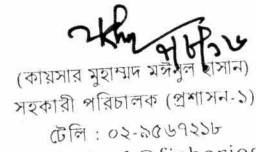 (কায়সার মুহাম্মদ মঈনুল হাসান)
সহকারী পরিচালক (প্রশাসন-১)
টেলি : ০২-৯৫৬৭২১৮